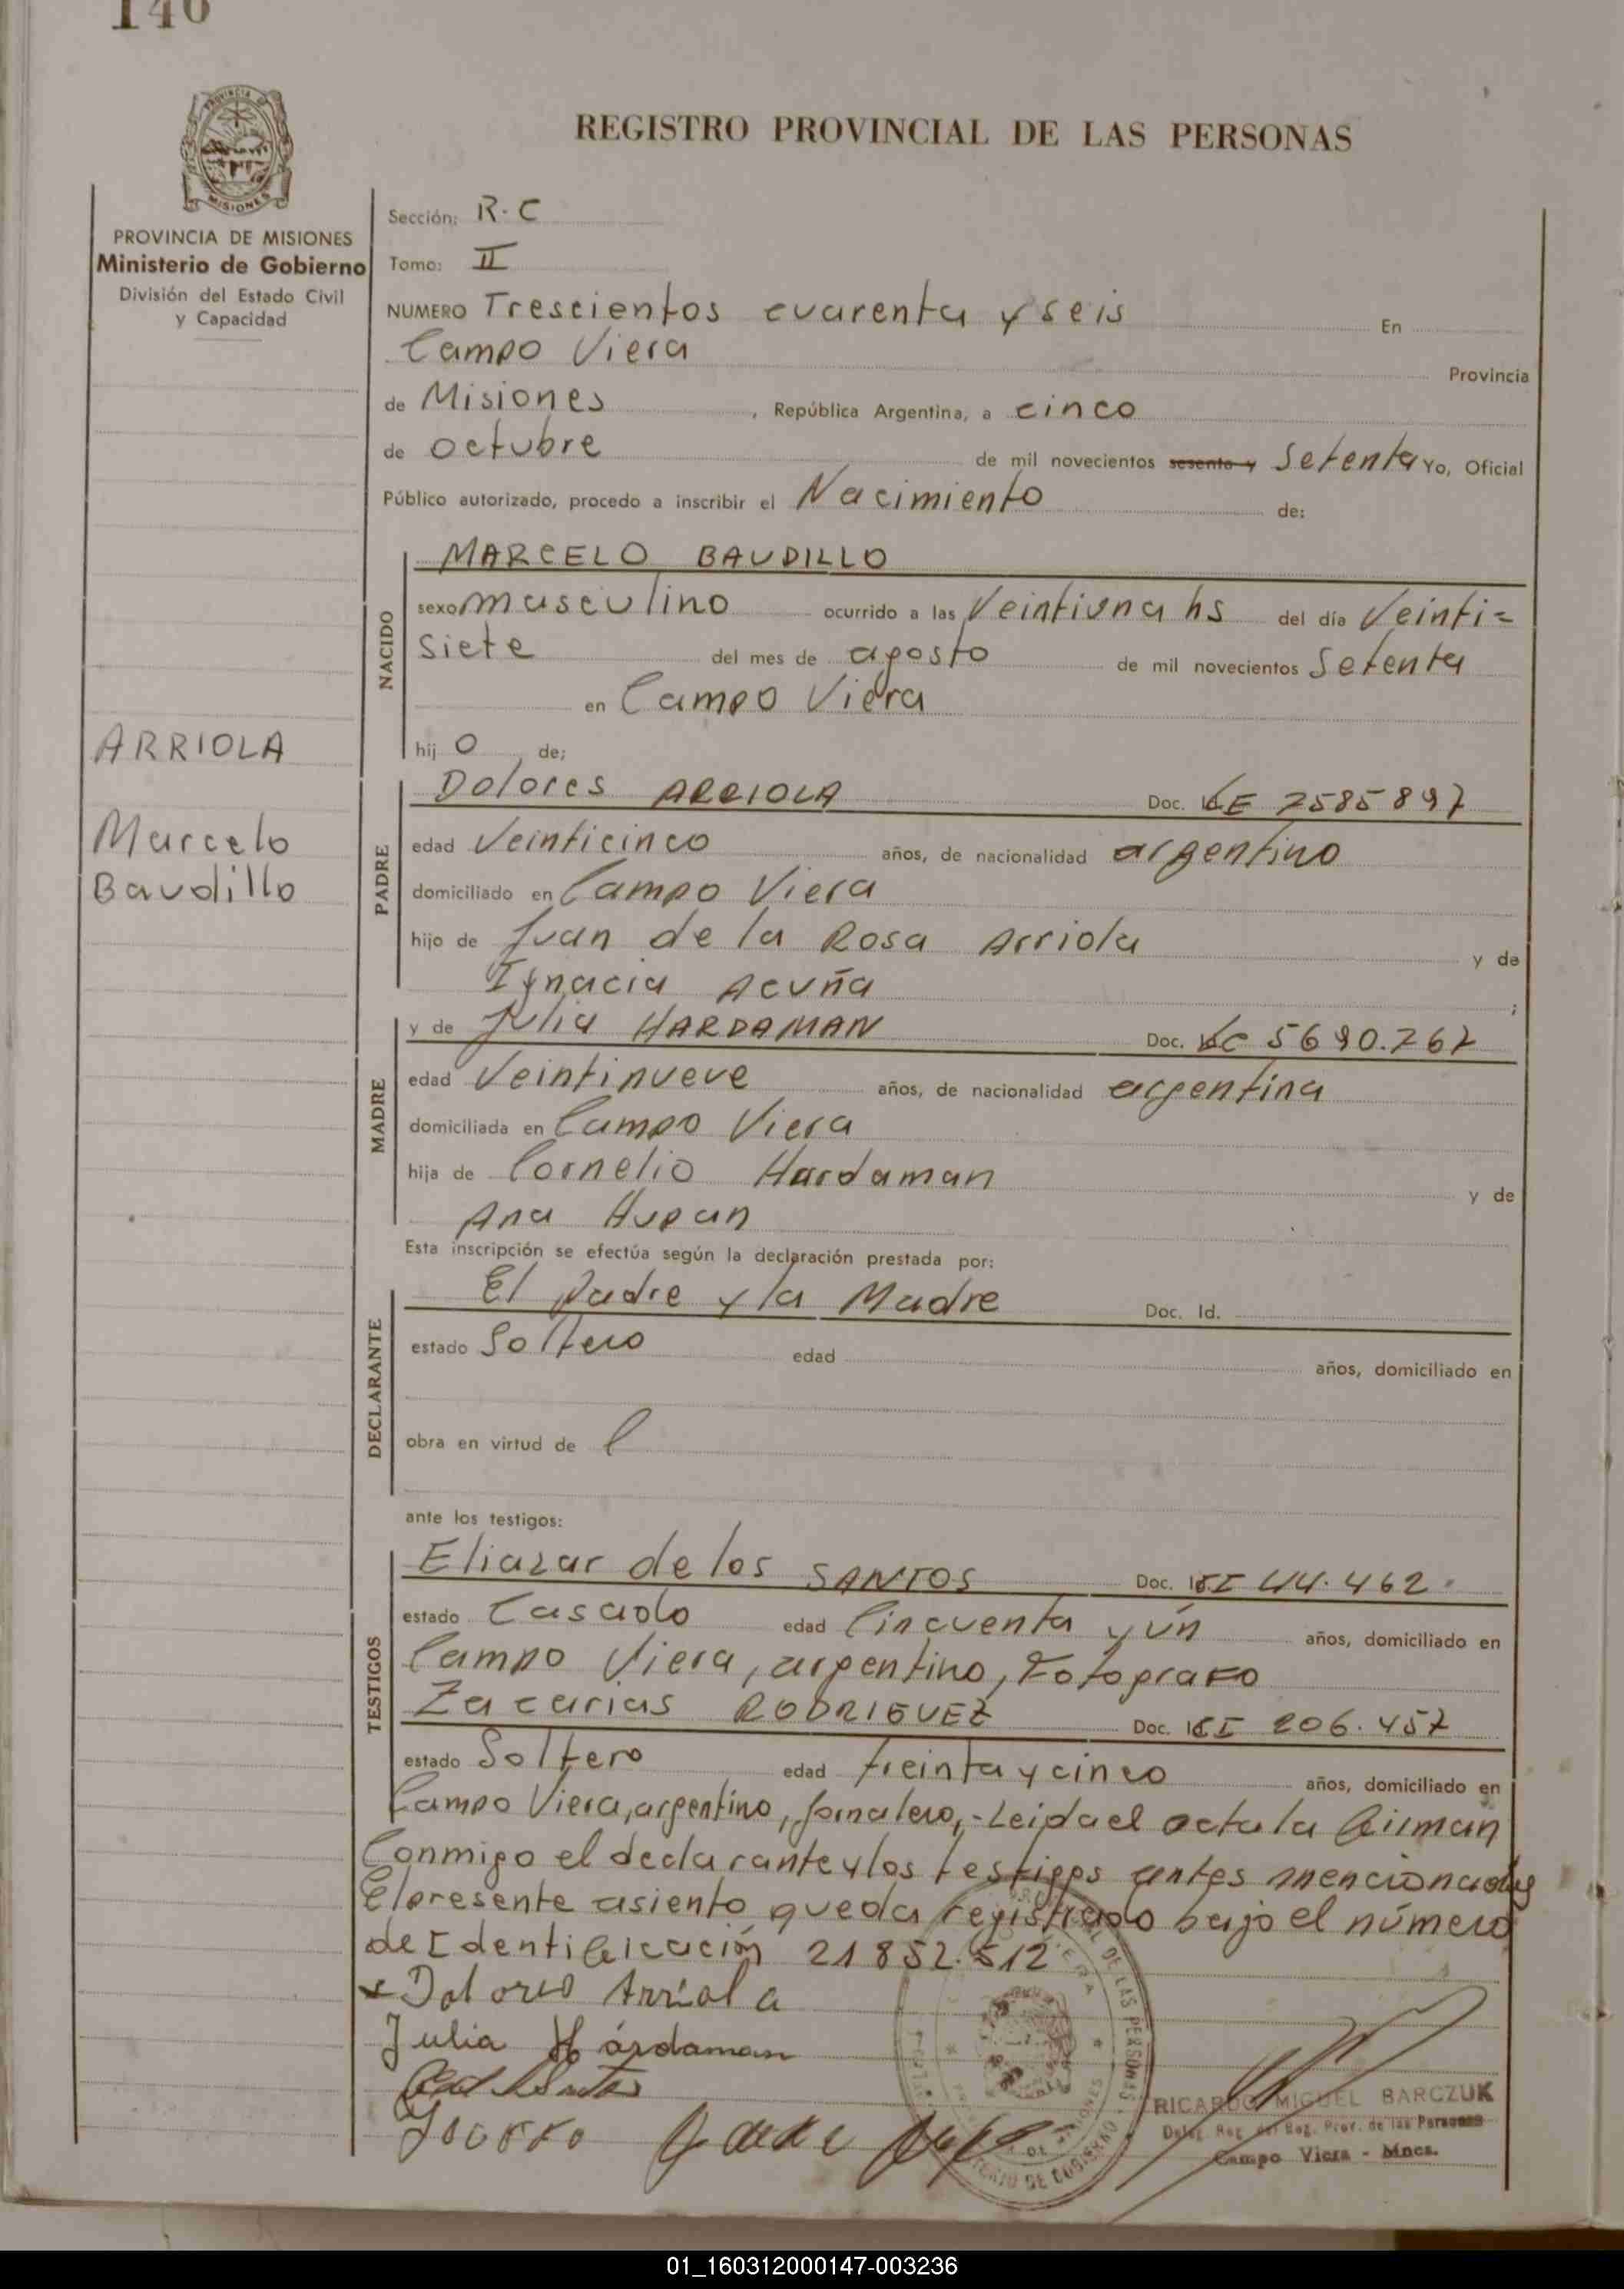 140
REGISTRO PROVINCIAL DE LAS PERSONAS
PROVINCIA DE MISIONES
Ministerio de Gobierno
División del Estado Civil
y Capacidad
Sección: R.C
Tomo: II
NUMERO Trescientos cuarenta y seis En
Campo Viera Provincia
de Misiones, República Argentina, a cinco
de octubre de mil novecientos sesenta y setenta Yo, Oficial
Público autorizado, procedo a inscribir el Nacimiento de:
NACIDO
MARCELO BAUDILLO
sexo masculino ocurrido a las Veintiuna hs del día Veinti=
siete del mes de agosto de mil novecientos Setenta
en Campo Viera
hij o de;
ARRIOLA
Marcelo
Baudillo
PADRE
Dolores ARRIOLA Doc. Id. LE 7585897
edad Veinticinco años, de nacionalidad argentino
domiciliado en Campo Viera
hijo de Juan de la Rosa Arriola y de
Ignacia Acuña ;
MADRE
y de Julia HARDAMAN Doc. LC 5690.767
edad Veintinueve años, de nacionalidad argentina
domiciliada en Campo Viera
hija de Cornelio Hardaman y de
Ana Hupan
Esta inscripción se efectúa según la declaración prestada por:
DECLARANTE
El Padre y la Madre Doc. Id.
estado Soltero edad años, domiciliado en
obra en virtud de
ante los testigos:
TESTIGOS
Eliazar de los SANTOS Doc. Id CI 44.462.
estado Casado edad Cincuenta y ún años, domiciliado en
Campo Viera, argentino, Fotografo
Zacarias RODRIGUEZ Doc. Id CI 206.457
estado Soltero edad treinta y cinco años, domiciliado en
Campo Viera, argentino, Jornalero,- Leida el acta la firman
Conmigo el declarante y los testigos antes mencionados
El presente asiento queda registrado bajo el número
de Identificación 21852.512
Dolores Arriola
Julia Hárdaman
RICARDO MIGUEL BARCZUK
Deleg. Reg. del Reg. Prov. de las Personas
Campo Viera - Mnes.
01_160312000147-003236